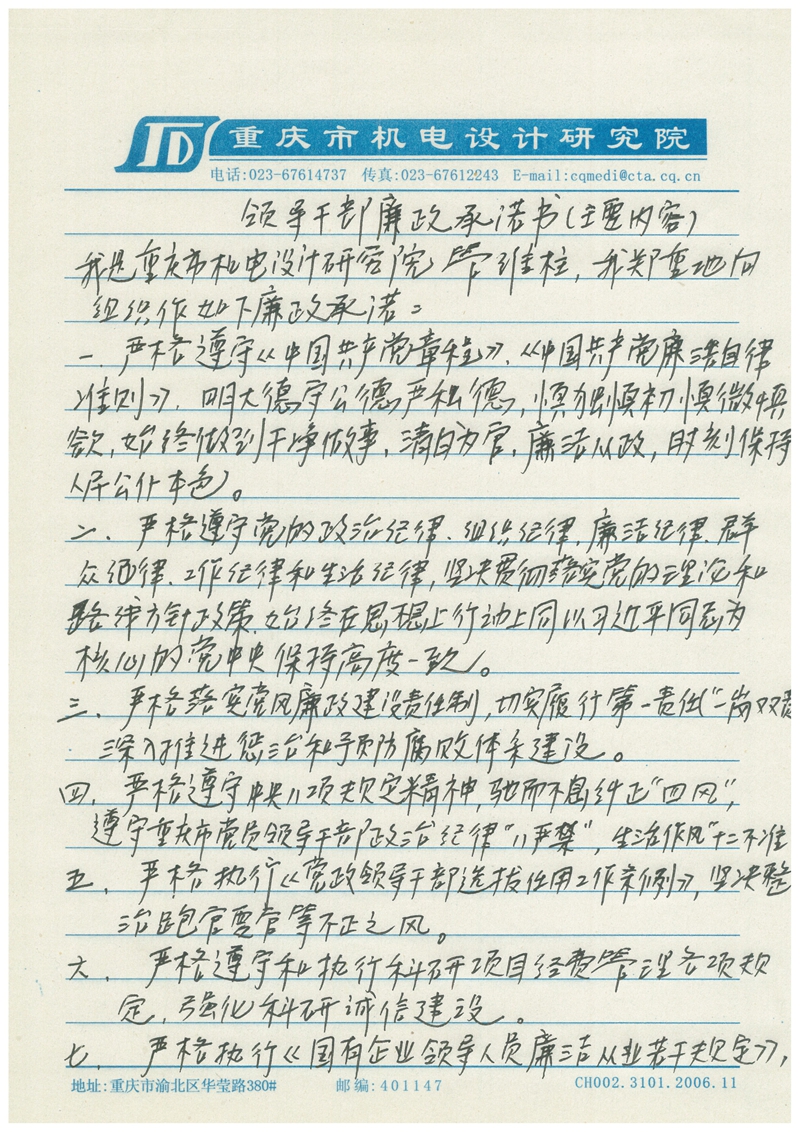 重庆市机电设计研究院
电话:023-67614737 传真:023-67612243 E-mail:cqmedi@cta.cq.cn
领导干部廉政承诺书(主要内容)
我是重庆市机电设计研究院管维柱,我郑重地向
组织作如下廉政承诺:
一、严格遵守《中国共产党章程》、《中国共产党廉洁自律
准则》,明大德守公德严私德,慎独慎初慎微慎
欲,始终做到干净做事,清白为官,廉洁从政,时刻保持
人民公仆本色。
二、严格遵守党的政治纪律、组织纪律、廉洁纪律、群
众纪律、工作纪律和生活纪律,坚决贯彻落实党的理论和
路线方针政策,始终在思想上行动上同以习近平同志为
核心的党中央保持高度一致。
三、严格落实党风廉政建设责任制,切实履行第一责任"一岗双责
深入推进惩治和预防腐败体系建设。
四、严格遵守中央八项规定精神,驰而不息纠正"四风",
遵守重庆市党员领导干部政治纪律"八严禁",生活作风"十二不准
五、严格执行《党政领导干部选拔任用工作条例》,坚决整
治跑官要官等不正之风。
六、严格遵守和执行科研项目经费管理各项规
定,强化科研诚信建设。
七、严格执行《国有企业领导人员廉洁从业若干规定》,
地址:重庆市渝北区华莹路380# 邮编:401147 CH002.3101.2006.11